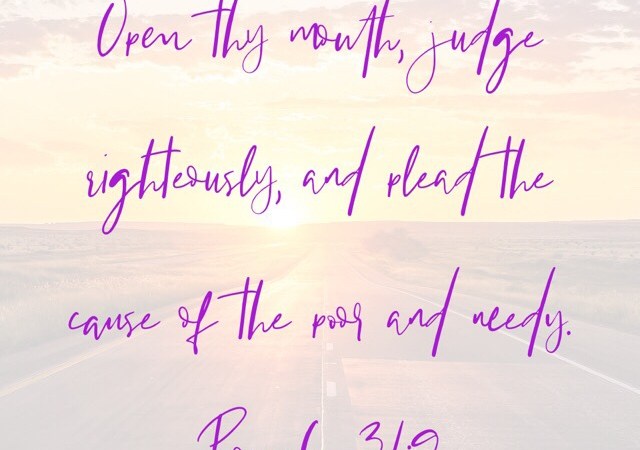 Open thy mouth, judge
righteously, and plead the
cause of the poor and needy.
31:9